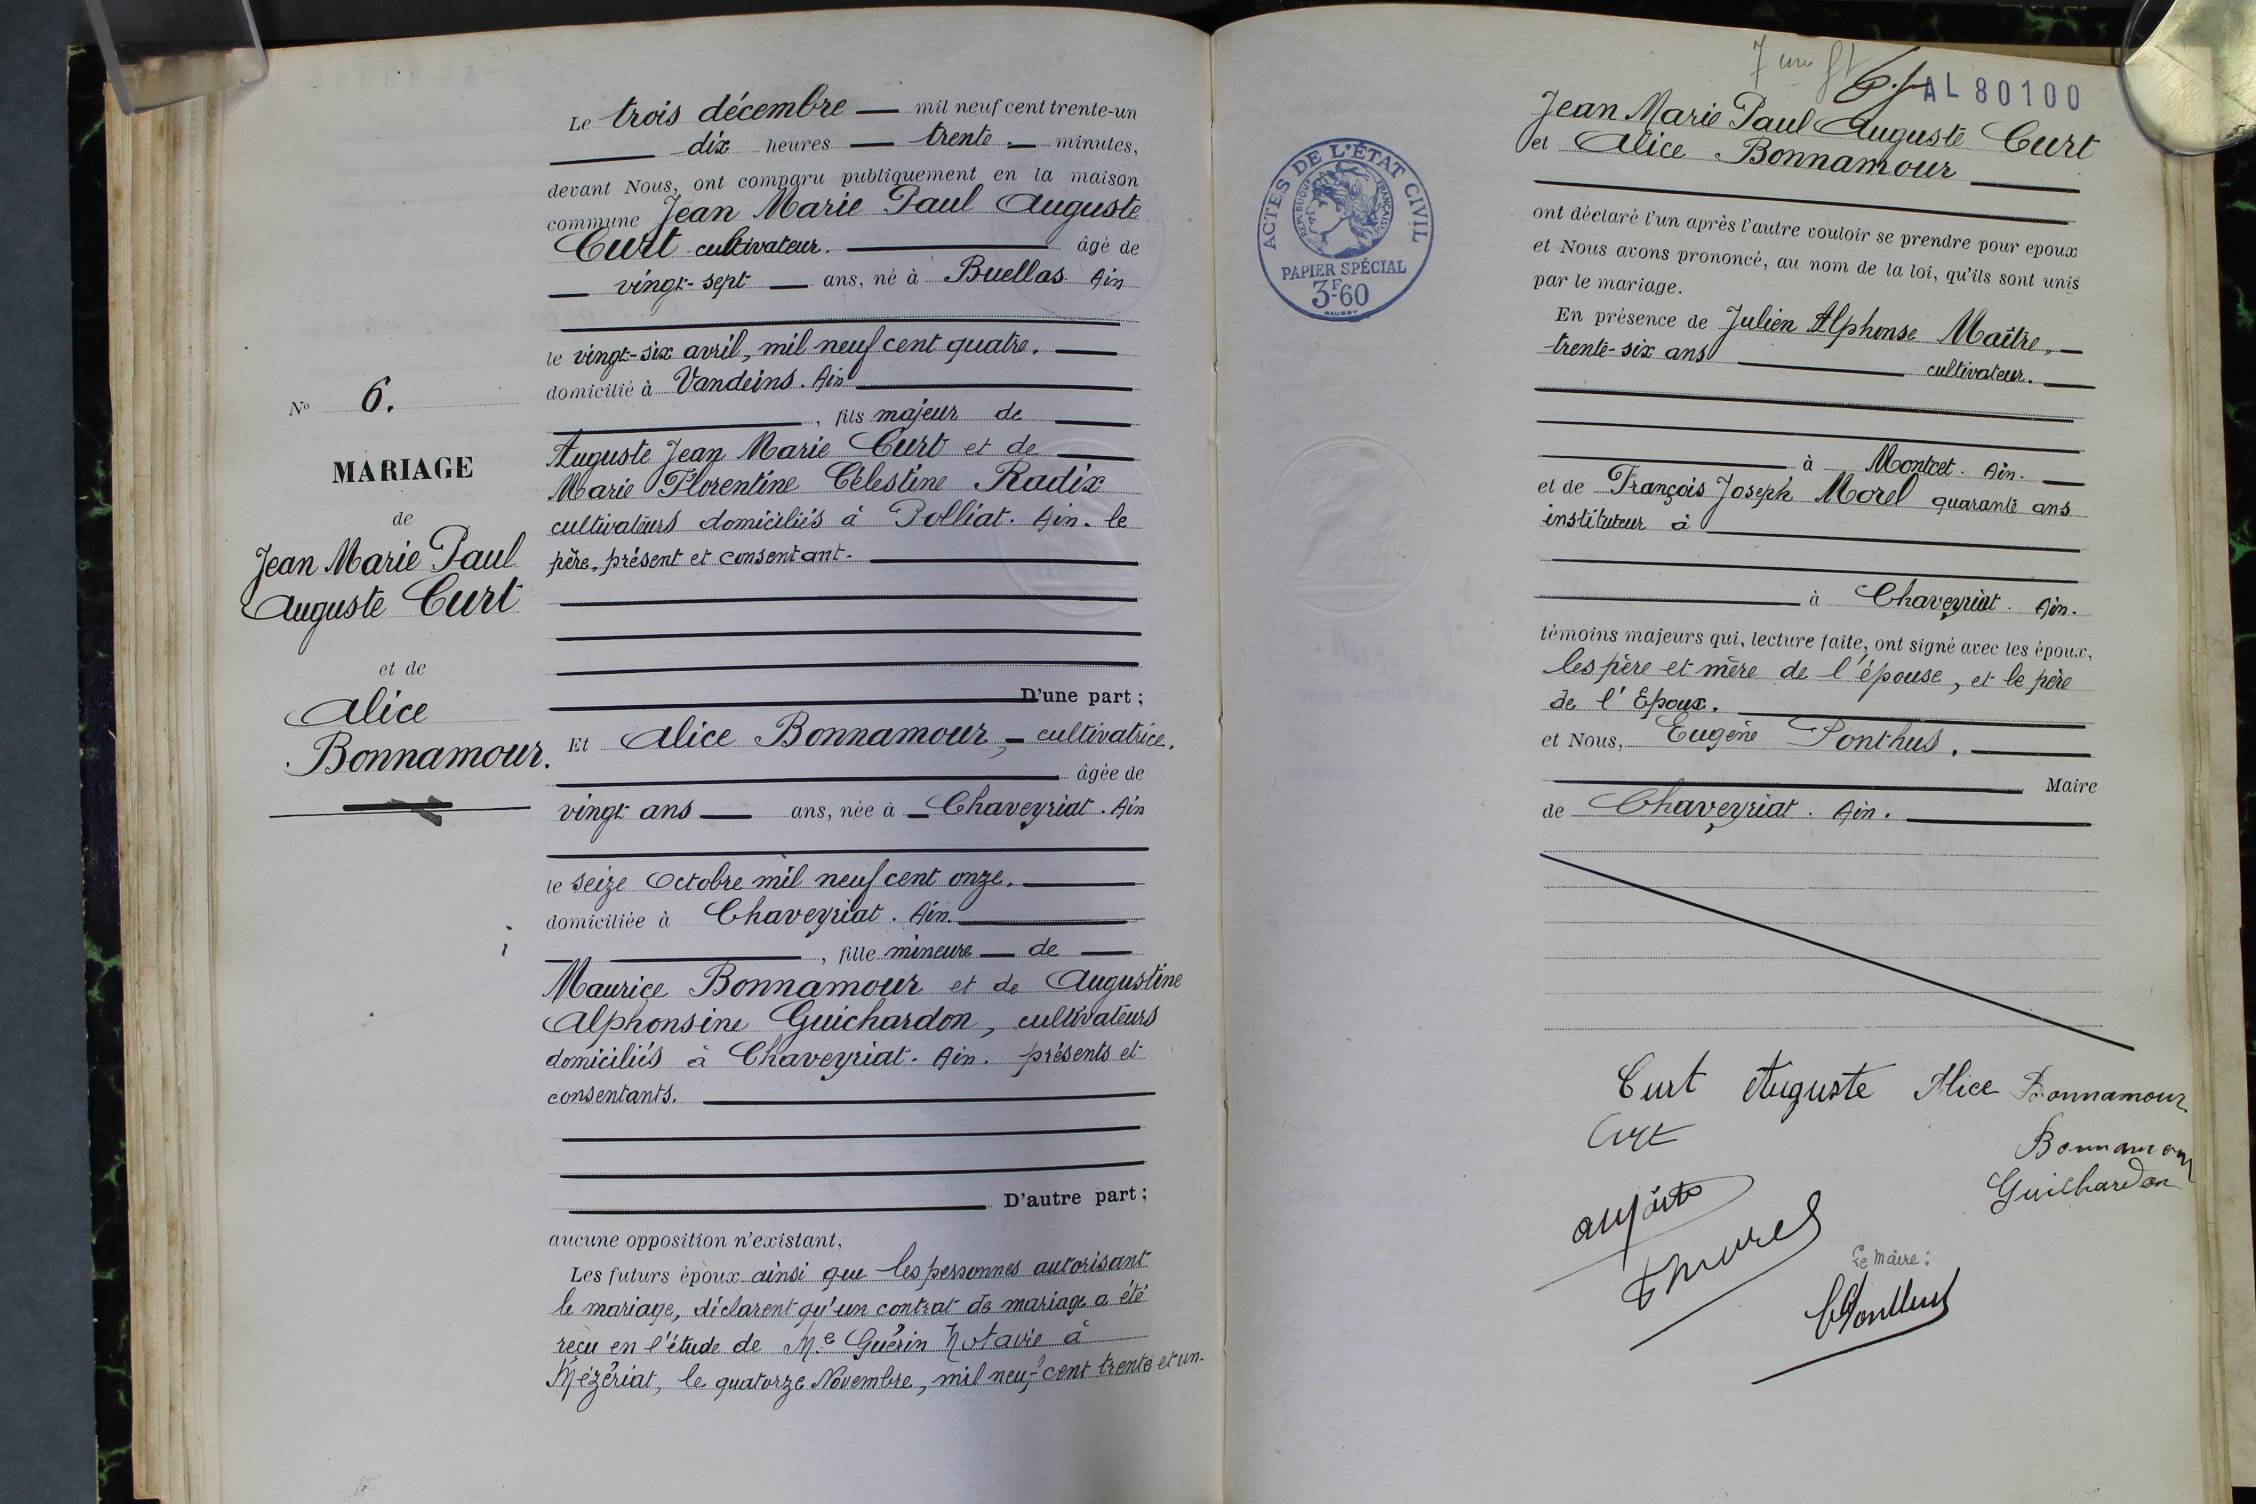 Le trois décembre mil neuf cent trente-un
dix heures trente minutes,
devant Nous, ont comparu publiquement en la maison
commune Jean Marie Paul Auguste
Curt cultivateur. âgé de
vingt-sept ans, né à Buellas Ain
le vingt-six avril, mil neuf cent quatre.
domicilié à Vandeins. Ain
, fils majeur de
Auguste Jean Marie Curt et de
Marie Florentine Célestine Radix
cultivateurs domiciliés à Polliat. Ain. le
père, présent et consentant.
D'une part ;
Et Alice Bonnamour, cultivatrice.
âgée de
vingt ans ans, née à Chaveyriat. Ain
le seize Octobre mil neuf cent onze.
domiciliée à Chaveyriat. Ain.
, fille mineure de
Maurice Bonnamour et de Augustine
Alphonsine Guichardon, cultivateurs
domiciliés à Chaveyriat. Ain. présents et
consentants.
D'autre part ;
aucune opposition n'existant,
Les futurs époux ainsi que les personnes autorisant
le mariage, déclarent qu'un contrat de mariage a été
reçu en l'étude de Me Guérin Notaire à
Mézériat, le quatorze Novembre, mil neuf cent trente et un.
No 6.
MARIAGE
de
Jean Marie Paul
Auguste Curt
et de
Alice
Bonnamour.
AL 80100
Jean Marie Paul Auguste Curt
et Alice Bonnamour
ACTES DE L'ÉTAT CIVIL
RÉPUBLIQUE FRANÇAISE
PAPIER SPÉCIAL
3F60
ont déclaré l'un après l'autre vouloir se prendre pour epoux
et Nous avons prononcé, au nom de la loi, qu'ils sont unis
par le mariage.
En présence de Julien Alphonse Maître,
trente-six ans cultivateur.
à Montcet. Ain.
et de François Joseph Morel quarante ans
instituteur à
à Chaveyriat. Ain.
témoins majeurs qui, lecture faite, ont signé avec les époux,
les père et mère de l'épouse, et le père
de l'Epoux.
et Nous, Eugène Ponthus.
Maire
de Chaveyriat. Ain.
Curt Auguste Alice Bonnamour
Curt
Bonnamour
Guichardon
Le Maire :